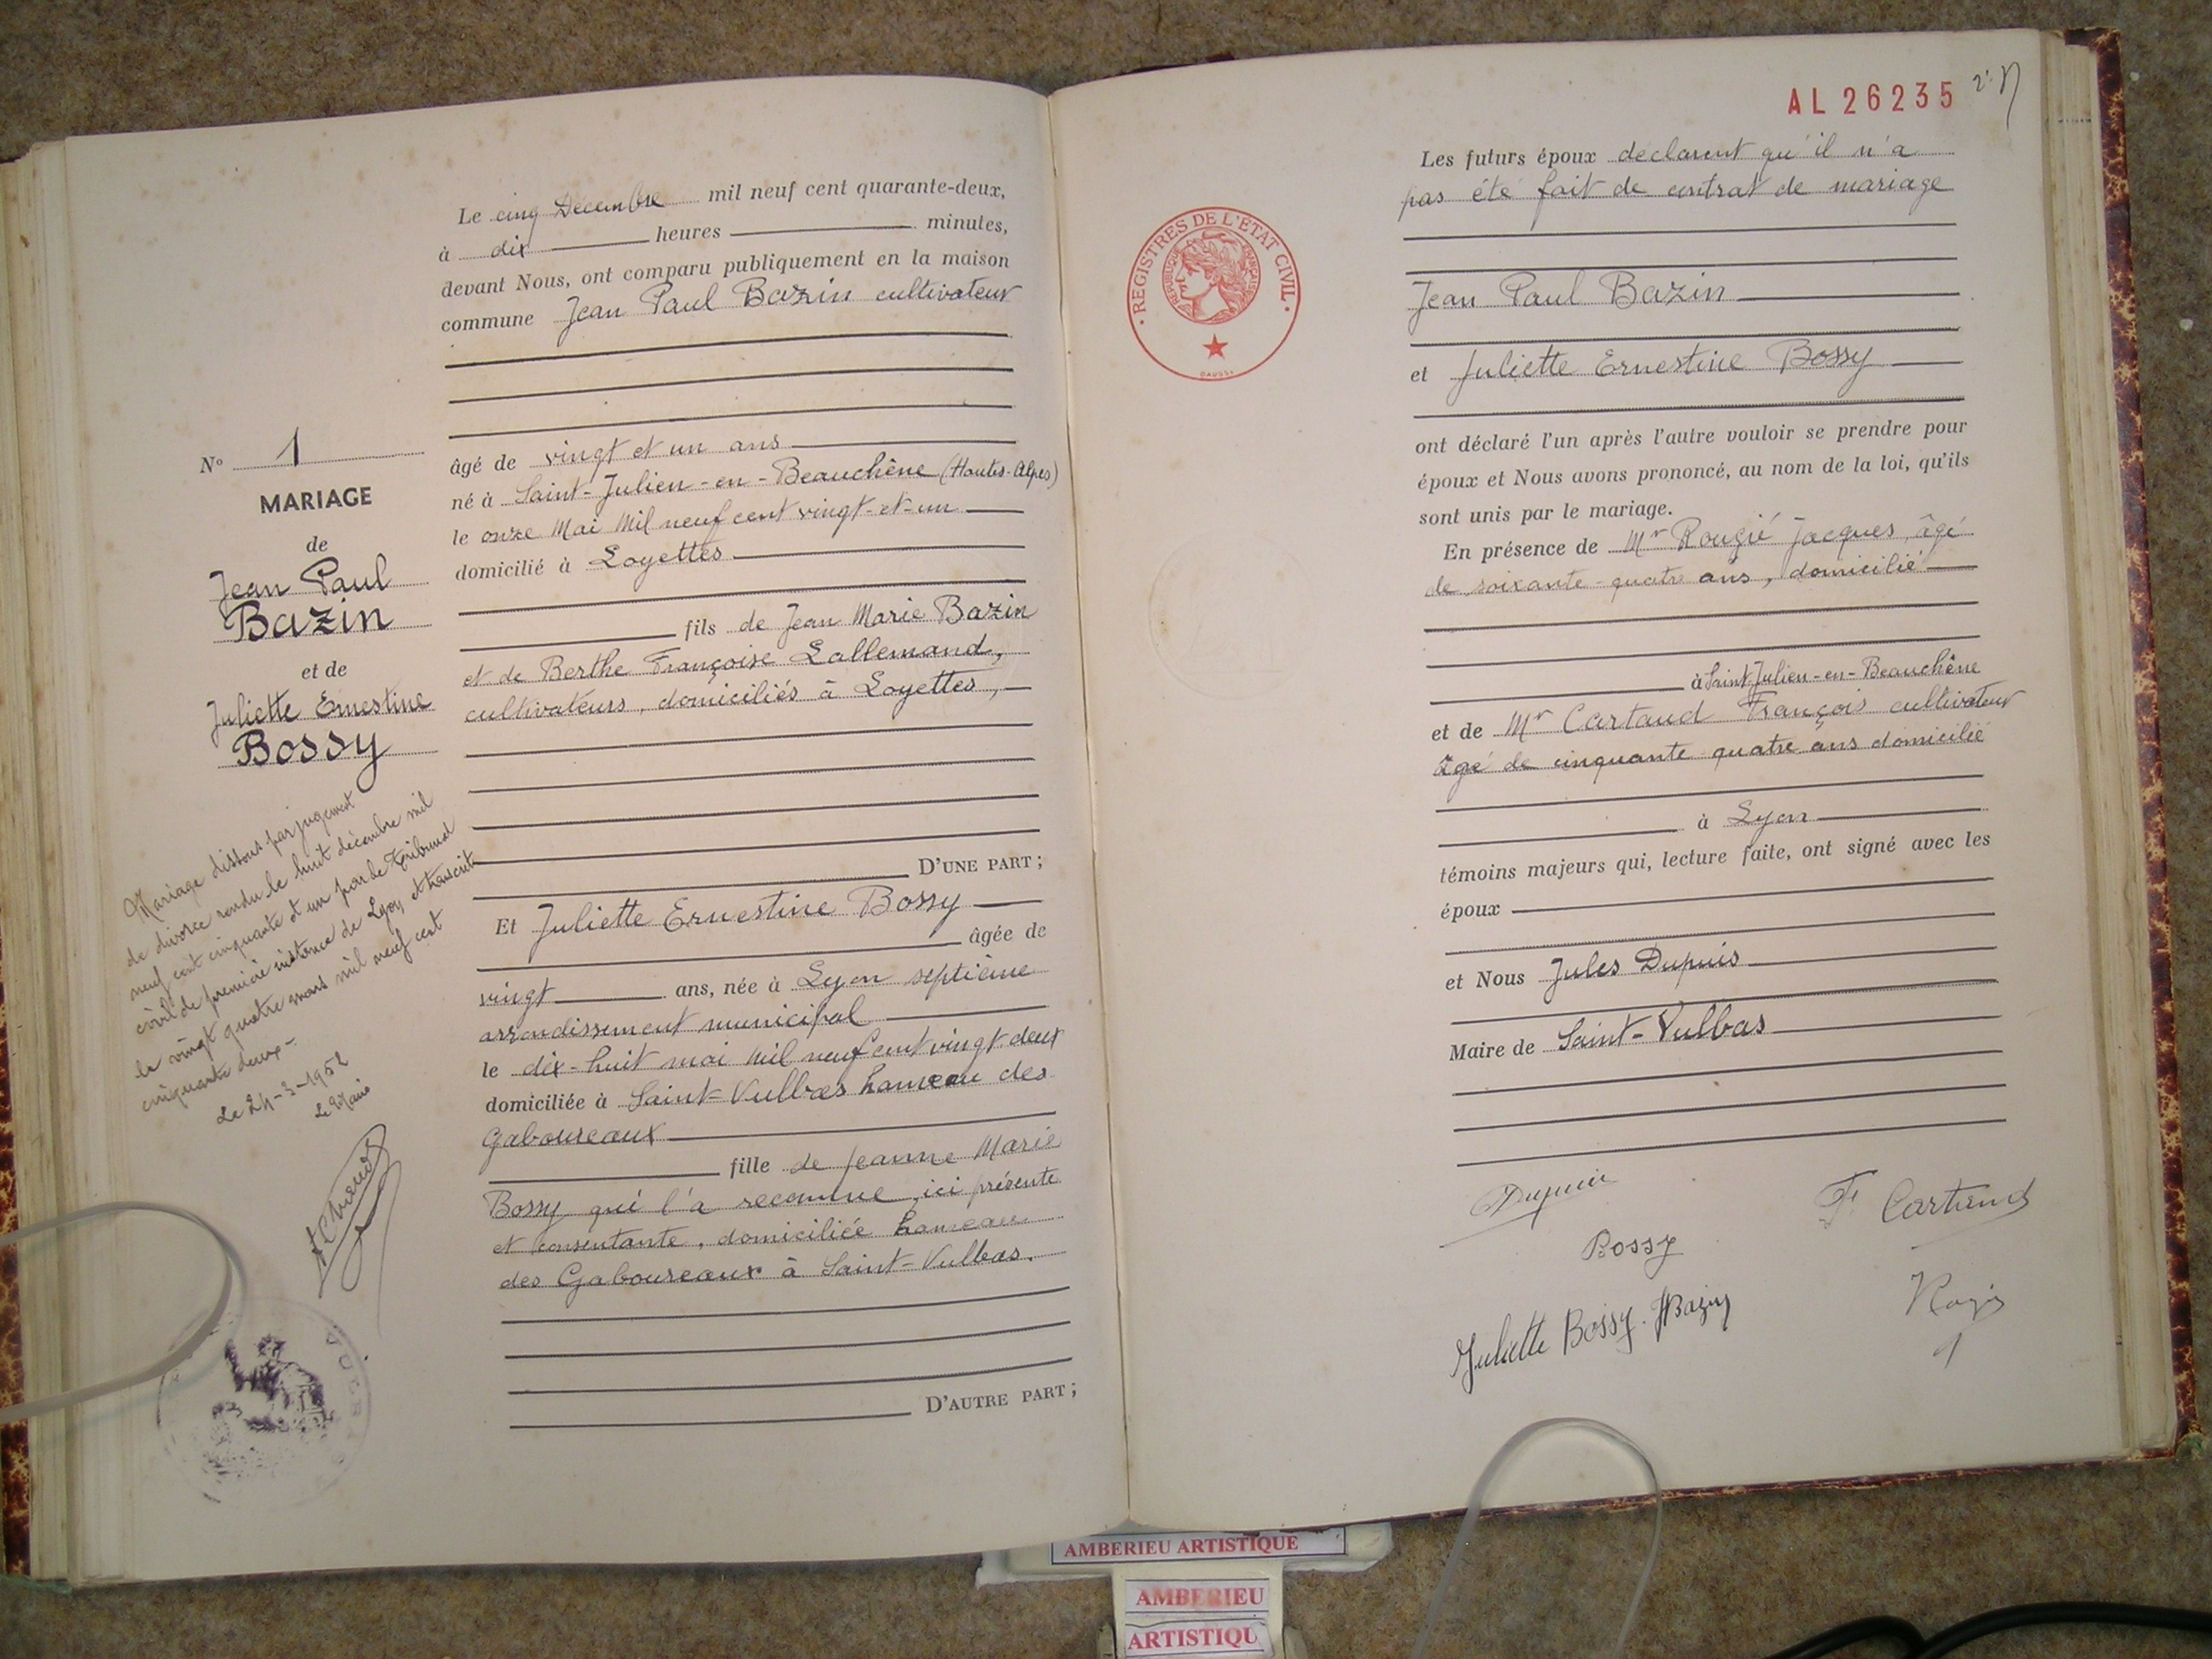 Le cinq Décembre mil neuf cent quarante-deux,
à dix heures minutes,
devant Nous, ont comparu publiquement en la maison
commune Jean Paul Bazin cultivateur
âgé de vingt et un ans
né à Saint-Julien-en-Beauchêne (Hautes-Alpes)
le onze Mai Mil neuf cent vingt-et-un
domicilié à Loyettes
fils de Jean Marie Bazin
et de Berthe Françoise Lallemand,
cultivateurs, domiciliés à Loyettes,
D'UNE PART ;
Et Juliette Ernestine Bossy
âgée de
vingt ans, née à Lyon septième
arrondissement municipal
le dix-huit mai Mil neuf cent vingt deux
domiciliée à Saint-Vulbas hameau des
Gaboureaux
fille de Jeanne Marie
Bossy qui l'a reconnue, ici présente
et consentante, domiciliée hameau
des Gaboureaux à Saint-Vulbas.
D'AUTRE PART ;
No 1
MARIAGE
de
Jean Paul
Bazin
et de
Juliette Ernestine
Bossy
Mariage dissous par jugement
de divorce rendu le huit décembre mil
neuf cent cinquante et un par le Tribunal
civil de première instance de Lyon, et transcrite
le vingt quatre mars mil neuf cent
cinquante deux -
Le 24-3-1952
Le Maire
AL 26235
REGISTRES DE L'ÉTAT CIVIL
RÉPUBLIQUE FRANÇAISE
Les futurs époux déclarent qu'il n'a
pas été fait de contrat de mariage
Jean Paul Bazin
et Juliette Ernestine Bossy
ont déclaré l'un après l'autre vouloir se prendre pour
époux et Nous avons prononcé, au nom de la loi, qu'ils
sont unis par le mariage.
En présence de Mr Rougié Jacques, âgé
de soixante-quatre ans, domicilié
à Saint Julien-en-Beauchêne
et de Mr Cartaud François cultivateur
âgé de cinquante quatre ans domicilié
à Lyon
témoins majeurs qui, lecture faite, ont signé avec les
époux
et Nous Jules Dupuis
Maire de Saint-Vulbas
Dupuis
F. Cartaud
Bossy
Juliette Bossy. JBazin
AMBERIEU ARTISTIQUE
AMBERIEU
ARTISTIQU